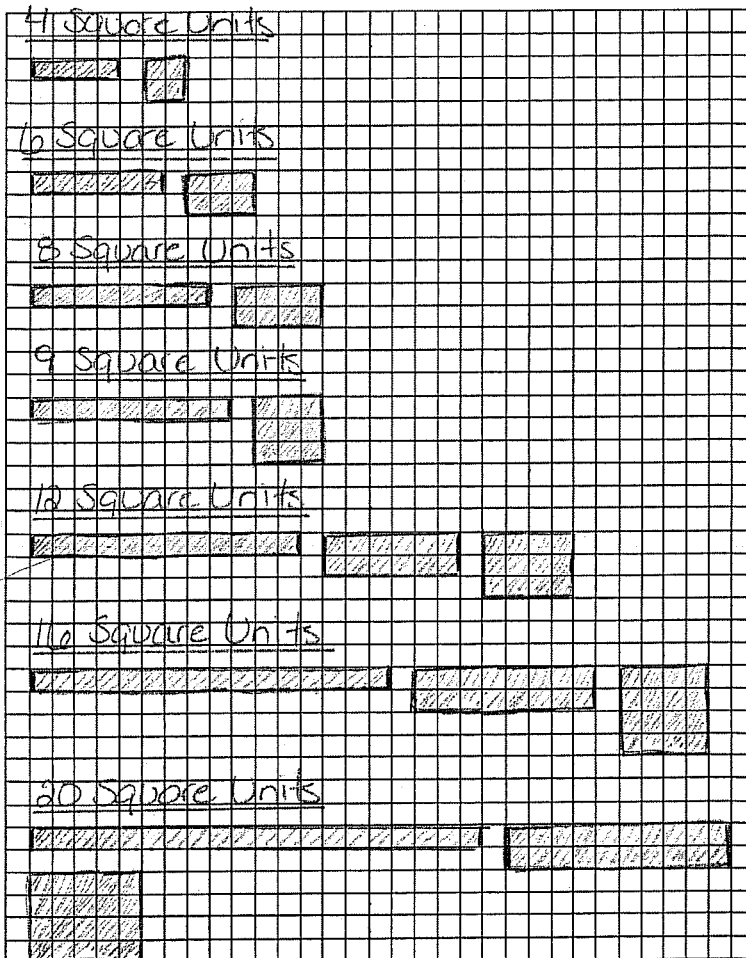 4 Square Units
6 Square Units
8 Square Units
9 Square Units
12 Square Units
16 Square Units
20 Square Units